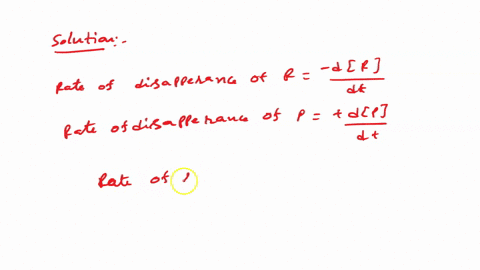 Solution:-
Rate of disapperance of R = -d[R]/dt
Rate of disapperance of P = +d[P]/dt
Rate of